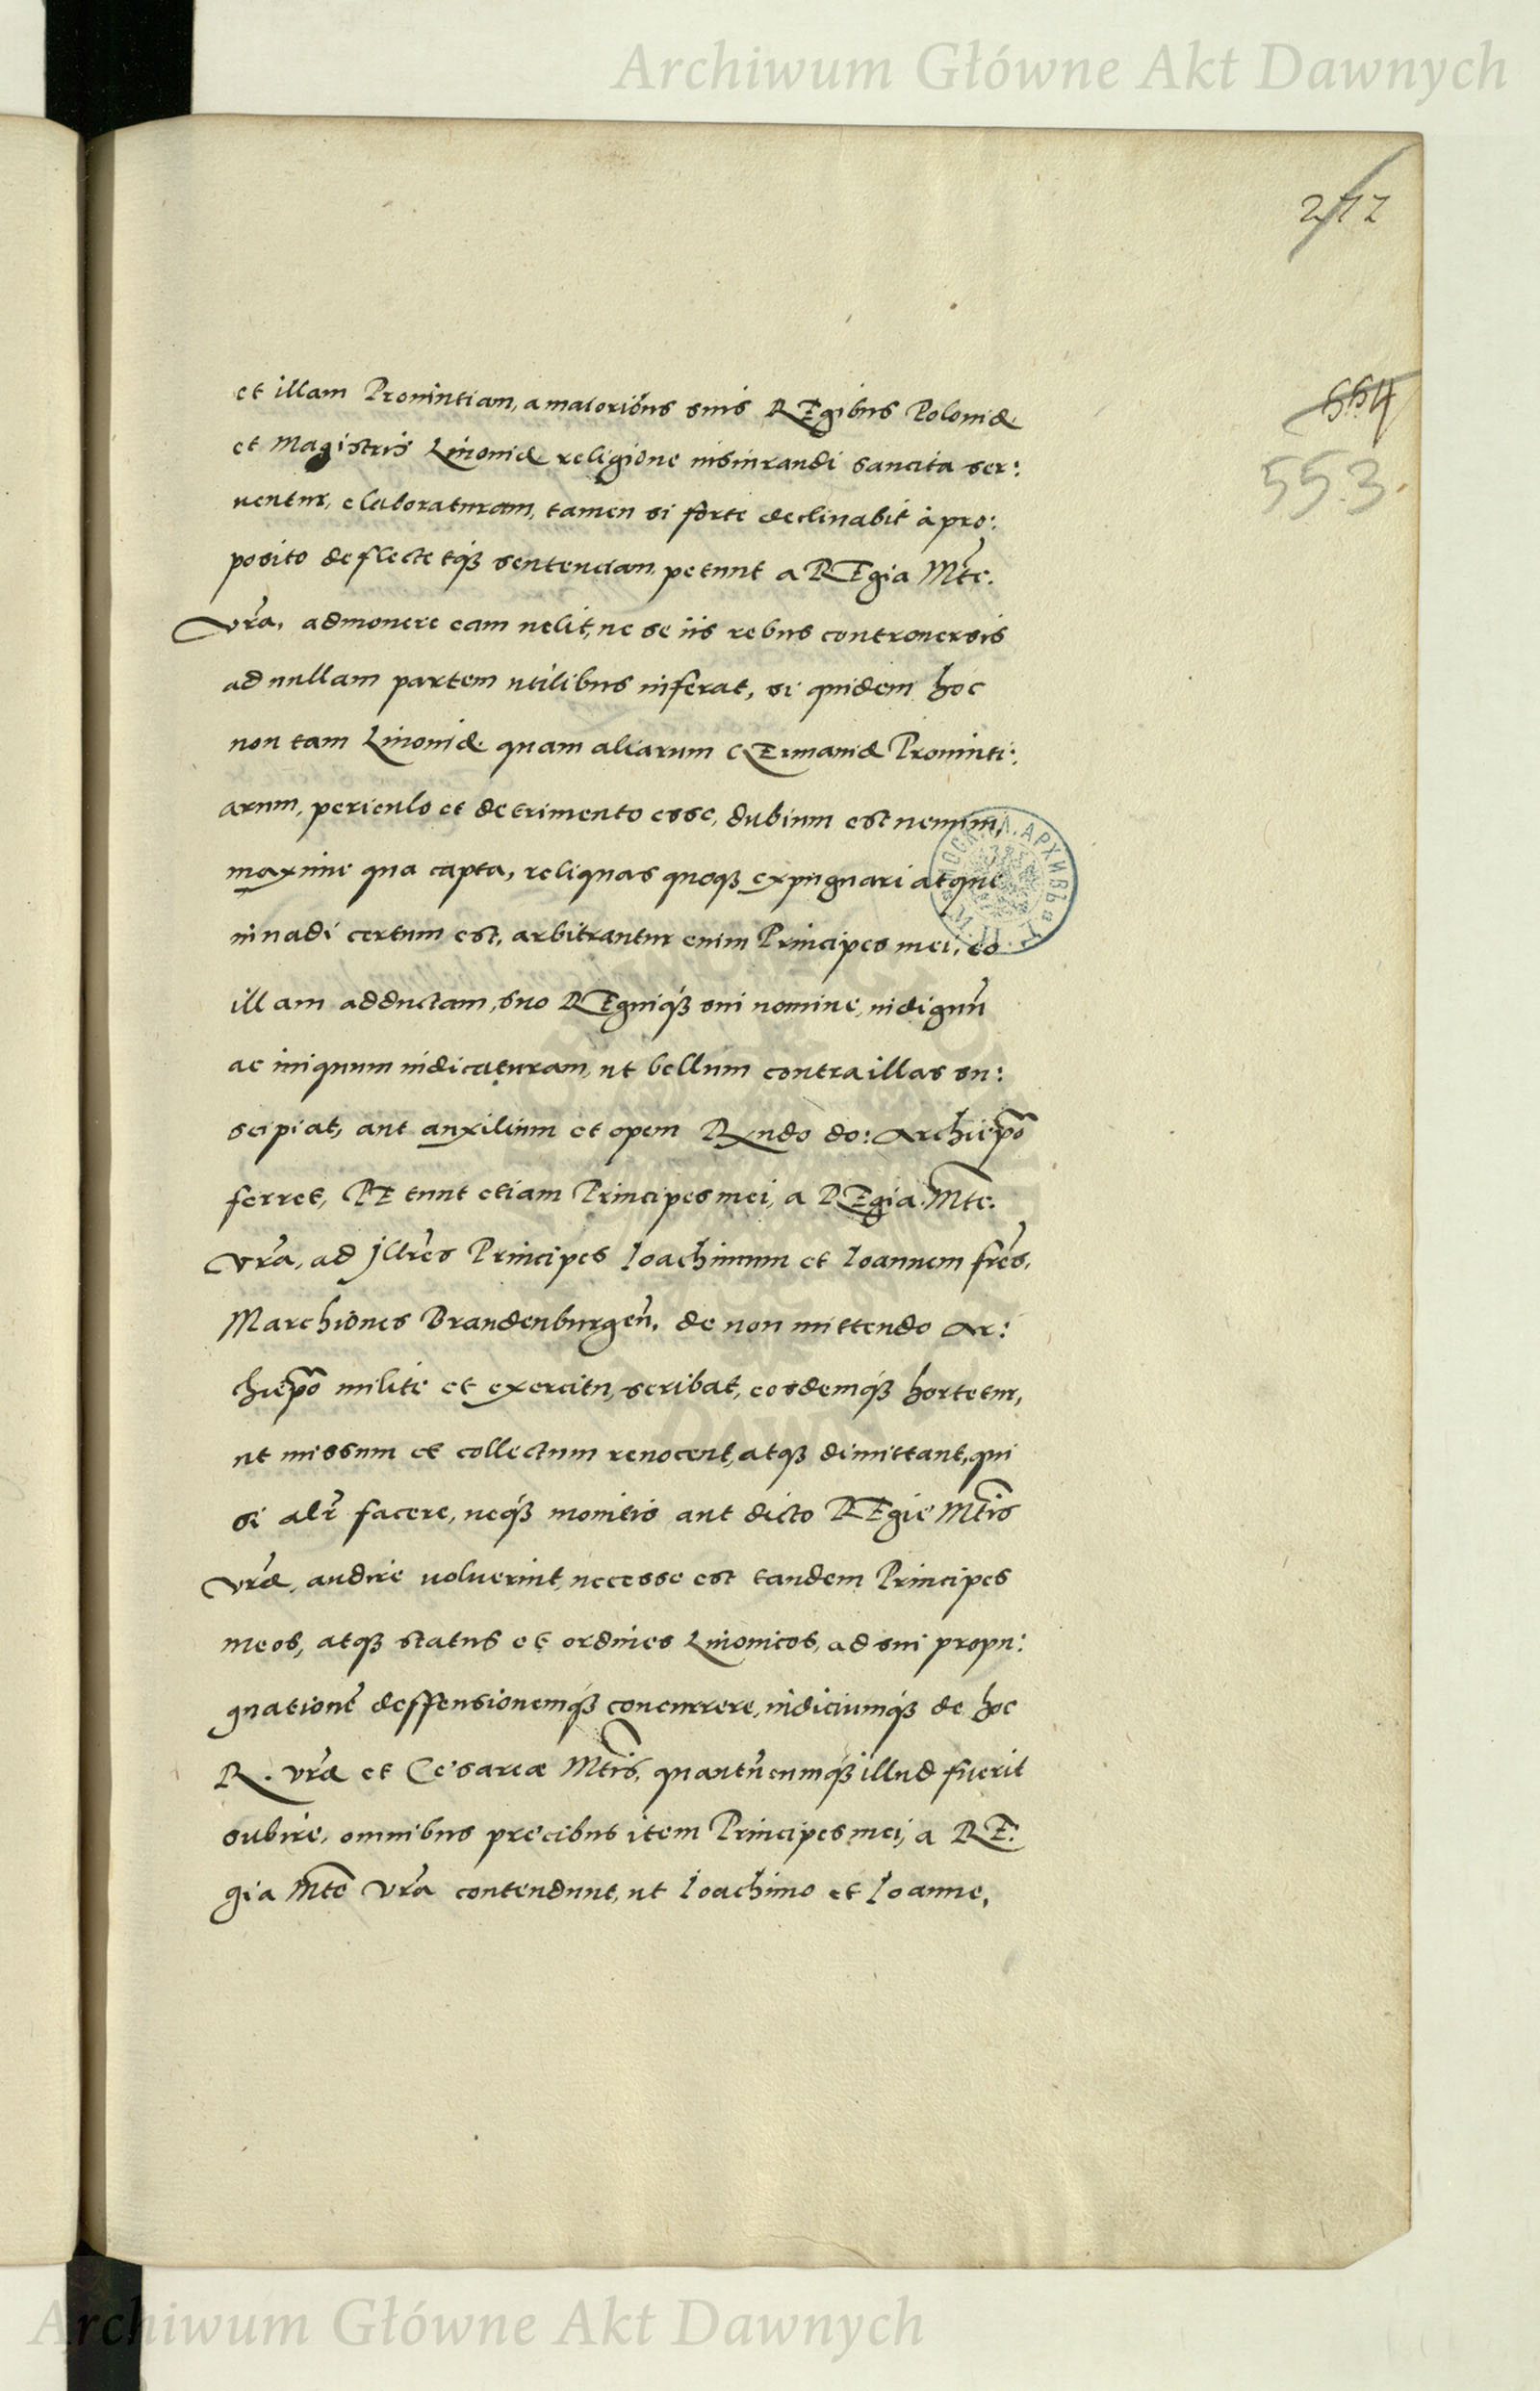 Archiwum Główne Akt Dawnych
212
554
553.
et illam Prouintiam, a maioribus suis REgibus Poloniæ
et Magistris Liuoniæ religione iusiurandi sancita ser:
uentur, elaboraturam, tamen si forte declinabit à pro:
posito deflectetq́ꝫ sententiam, petunt a REgia Mte.
Vr̃a, admonere eam uelit, ne se iis rebus controuersis
ad nullam partem utilibus inferat, si quidem hoc
non tam Liuoniæ quam aliarum GErmaniæ Prouinti:
arum, periculo et detrimento esse, dubium est nemini,
maxime qua capta, reliquas quoqꝫ expugnari atque
inuadi certum est, arbitrantur enim Principes mei, eo
illam adductam, suo REgniq́ꝫ sui nomine, indignũ
ac iniquum iudicaturam, ut bellum contra illas su:
scipiat, aut auxilium et opem Rndo do: Archiepõ
ferret, PEtunt etiam Principes mei, a REgia Mte.
Vr̃a, ad Jllr̃es Principes Ioachimum et Ioannem fr̃es,
Marchiones Brandenburgeñ, de non mittendo Ar:
chiepõ milite et exercitu, scribat, eosdemq́ꝫ hortetur,
ut missum et collectum reuocent, atqꝫ dimittant, qui
si alr̃ facere, neq́ꝫ monitis aut dicto REgie Mtis
Vr̃æ, audire uoluerint, necesse est tandem Principes
meos, atqꝫ status et ordines Liuonicos, ad sui propu:
gnationẽ deffensionemq́ꝫ concurrere, iudiciumq́ꝫ de hoc
R. Vr̃æ et Cesareæ Mtis, quantũcumq́ꝫ illud fuerit
subire, omnibus precibus item Principes mei, a RE:
gia Mte Vr̃a contendunt, ut Ioachimo et Ioanne,
Archiwum Główne Akt Dawnych